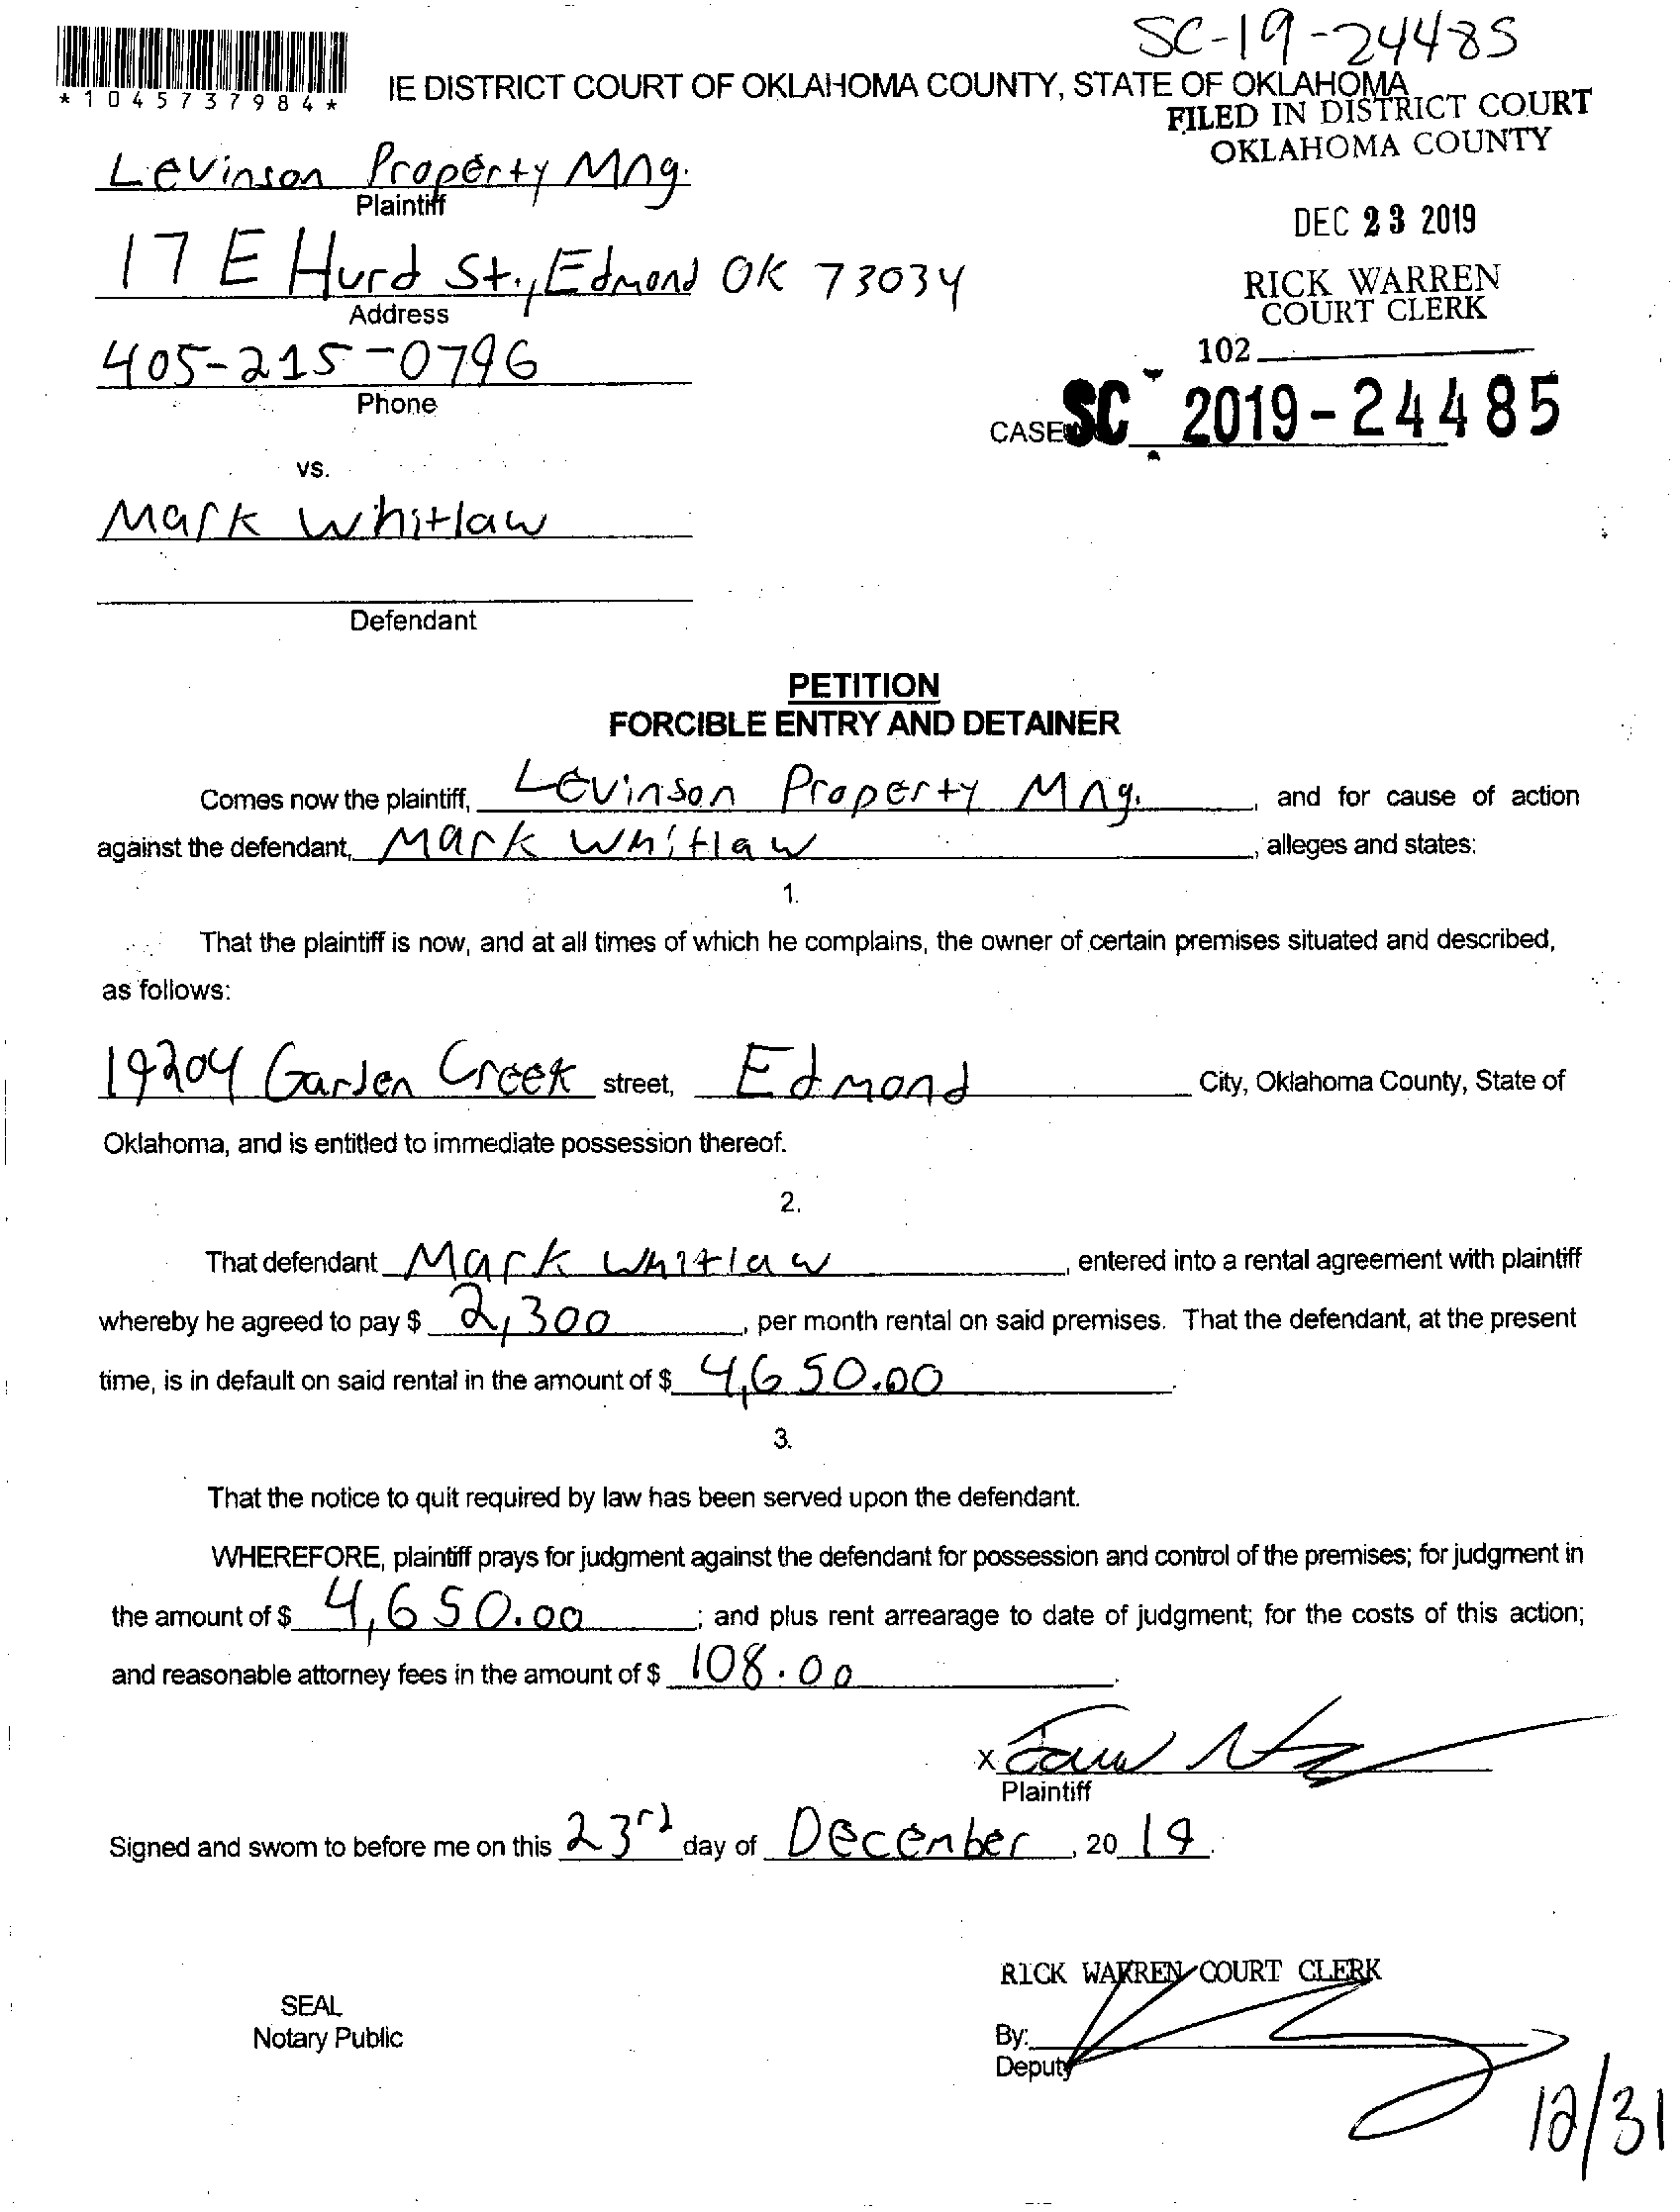 SC-19-24485
*1045737984*
IE DISTRICT COURT OF OKLAHOMA COUNTY, STATE OF OKLAHOMA
FILED IN DISTRICT COURT
OKLAHOMA COUNTY
Levinson Property Mng.
Plaintiff
DEC 23 2019
17 E Hurd St., Edmond OK 73034
Address
RICK WARREN
COURT CLERK
405-215-0796
Phone
102
CASE SC 2019-24485
vs.
Mark Whitlaw
Defendant
PETITION
FORCIBLE ENTRY AND DETAINER
Comes now the plaintiff, Levinson Property Mng. , and for cause of action
against the defendant, Mark Whitlaw , alleges and states:
1.
That the plaintiff is now, and at all times of which he complains, the owner of certain premises situated and described,
as follows:
19204 Garden Creek street, Edmond City, Oklahoma County, State of
Oklahoma, and is entitled to immediate possession thereof.
2.
That defendant Mark Whitlaw , entered into a rental agreement with plaintiff
whereby he agreed to pay $ 2,300 , per month rental on said premises. That the defendant, at the present
time, is in default on said rental in the amount of $ 4,650.00 .
3.
That the notice to quit required by law has been served upon the defendant.
WHEREFORE, plaintiff prays for judgment against the defendant for possession and control of the premises; for judgment in
the amount of $ 4,650.00 ; and plus rent arrearage to date of judgment; for the costs of this action;
and reasonable attorney fees in the amount of $ 108.00 .
x
Plaintiff
Signed and sworn to before me on this 23rd day of December , 20 19 .
RICK WARREN COURT CLERK
SEAL
Notary Public
By:
Deputy
12/31